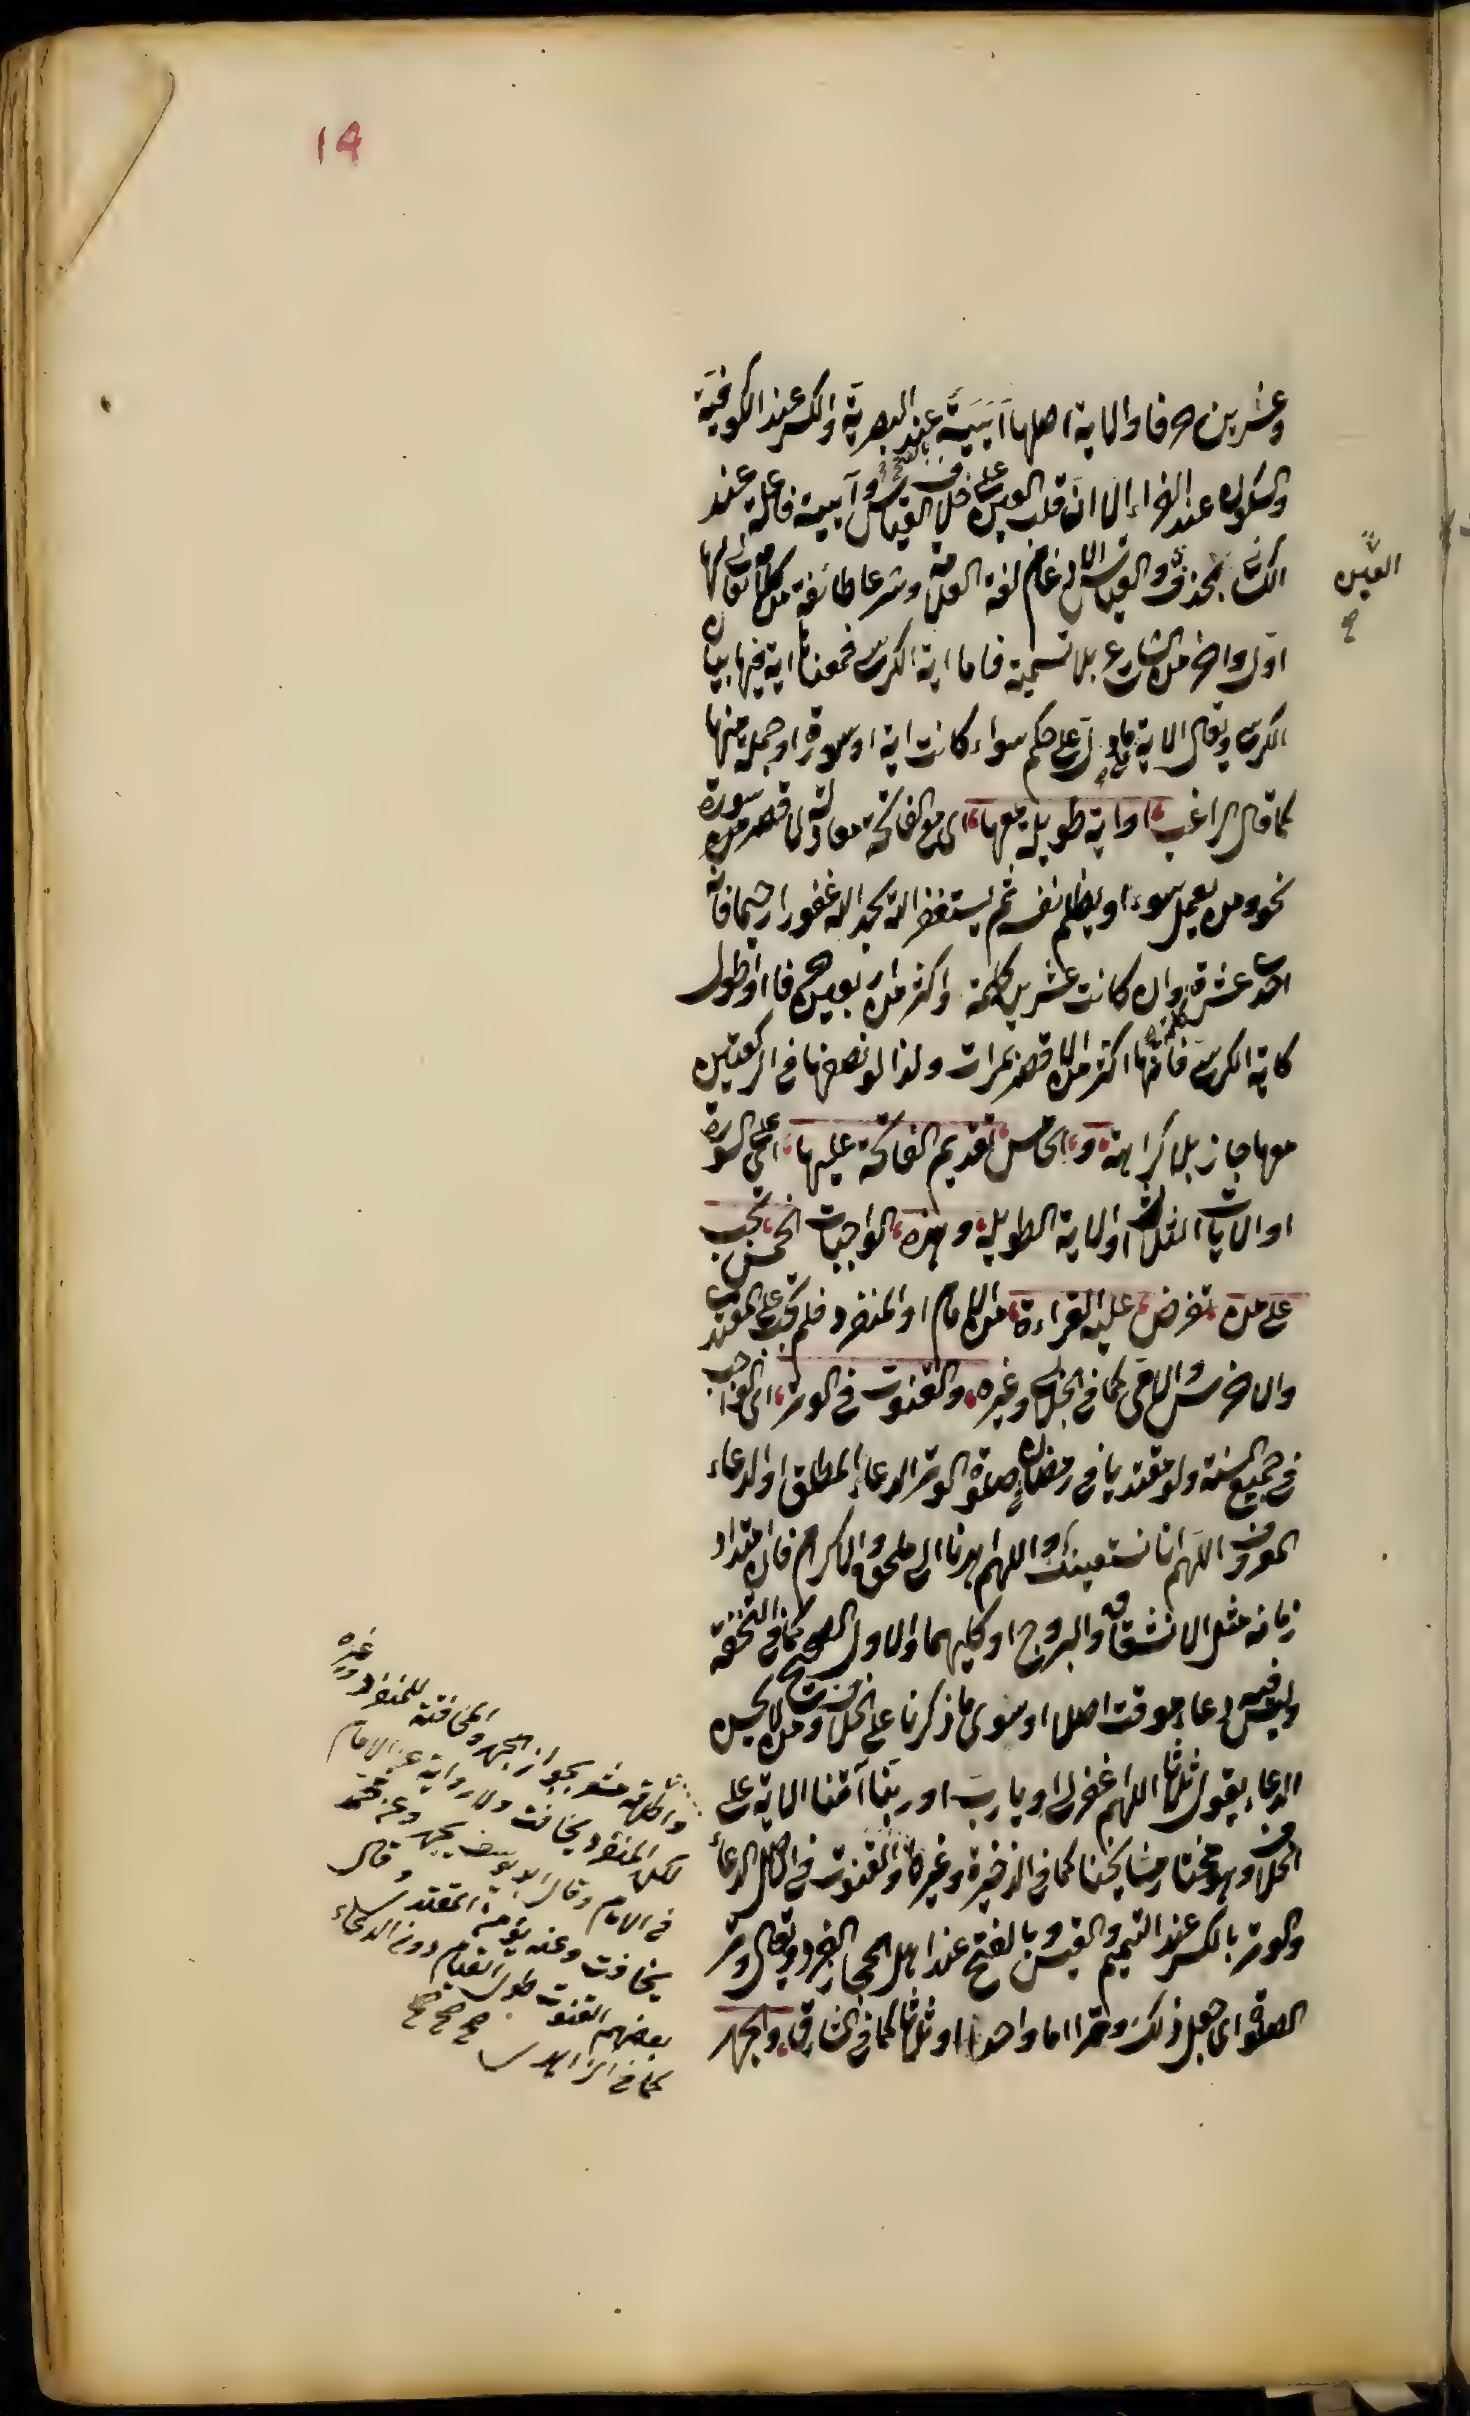 14
وعشرين حرفا والاية اصلها اَيَيَة عند البصرية والكسر عند الكوفية
والسكون عند الفراء الا ان قلب العين على خلاف القياس وآيية فاعلة عند
الكسائي بحذف والقياس الادغام لغة العلامة وشرعا طائفة من كلامه تعالى لها
اول واخر من الشارع بلا تسمية فاما اية الكرسي فمعناها اية فيها بيان
الكرسي ويقال الاية ما دل على حكم سواء كانت اية او سورة او جملة منها
كما قال الراغب او اية طويلة معها اى مع الفاتحة معادلة لاقصر من سورة
نحو ومن يعمل سوءا او يظلم نفسه ثم يستغفر الله يجد الله غفورا رحيما فانه
احدى عشرة وان كانت عشرين كلمة واكثر من اربعين حرفا او اطول
كاية الكرسي فانها اكثر من الاقصر بمرات ولذا لو نصفها فى الركعتين
معها جاز بلا كراهة والخامس تقديم الفاتحة عليها اى على السورة
او الايات الثلاث او الاية الطويلة وهذه الواجبات الخمس تجب
على من تفرض عليه القراءة من الامام او المنفرد فلم تجب على المقتدى
والاخرس والامى كما فى الجلابى وغيره والقنوت فى الوتر اى الواجب
فى جميع السنة ولو مقتديا فى رمضان صلوة الوتر الدعاء المطلق او الدعاء
المعروف اللهم انا نستعينك او اللهم اهدنا الى ملحق والاكرام فان مقدار
زمانه مثل الانشقاق والبروج او كليهما والاول الصحيح كما فى التحفة
وليس فيه دعاء موقت اصلا او سوى ما ذكرنا على الخلاف ومن لا يحسن
الدعاء يقول ثلثا اللهم اغفر لى او يا رب او ربنا آتنا الاية على
الخلاف وهو مختار مشايخنا كما فى الذخيرة وغيرها والقنوت فى الاصل الدعاء
والوتر بالكسر عند التميم والقيس وبالفتح عند اهل الحجاز الفرد ويقال وتر
الصلوة اى جعل ذلك وترا اما واحدا او ثلثا كما فى المشارق والجهر
العين
صح
والكلام مشعر بجواز الجهر والمخافتة للمنفرد وغيره
لكن المنفرد يخافت ولا رواية عن الامام
فى الامام وقال ابو يوسف يجهر وعن محمد
يخافت وعنه يؤمن المقتدى وقال
بعضهم القنوت طول القيام دون الدعاء
كما فى الزاهدى صح صح صح